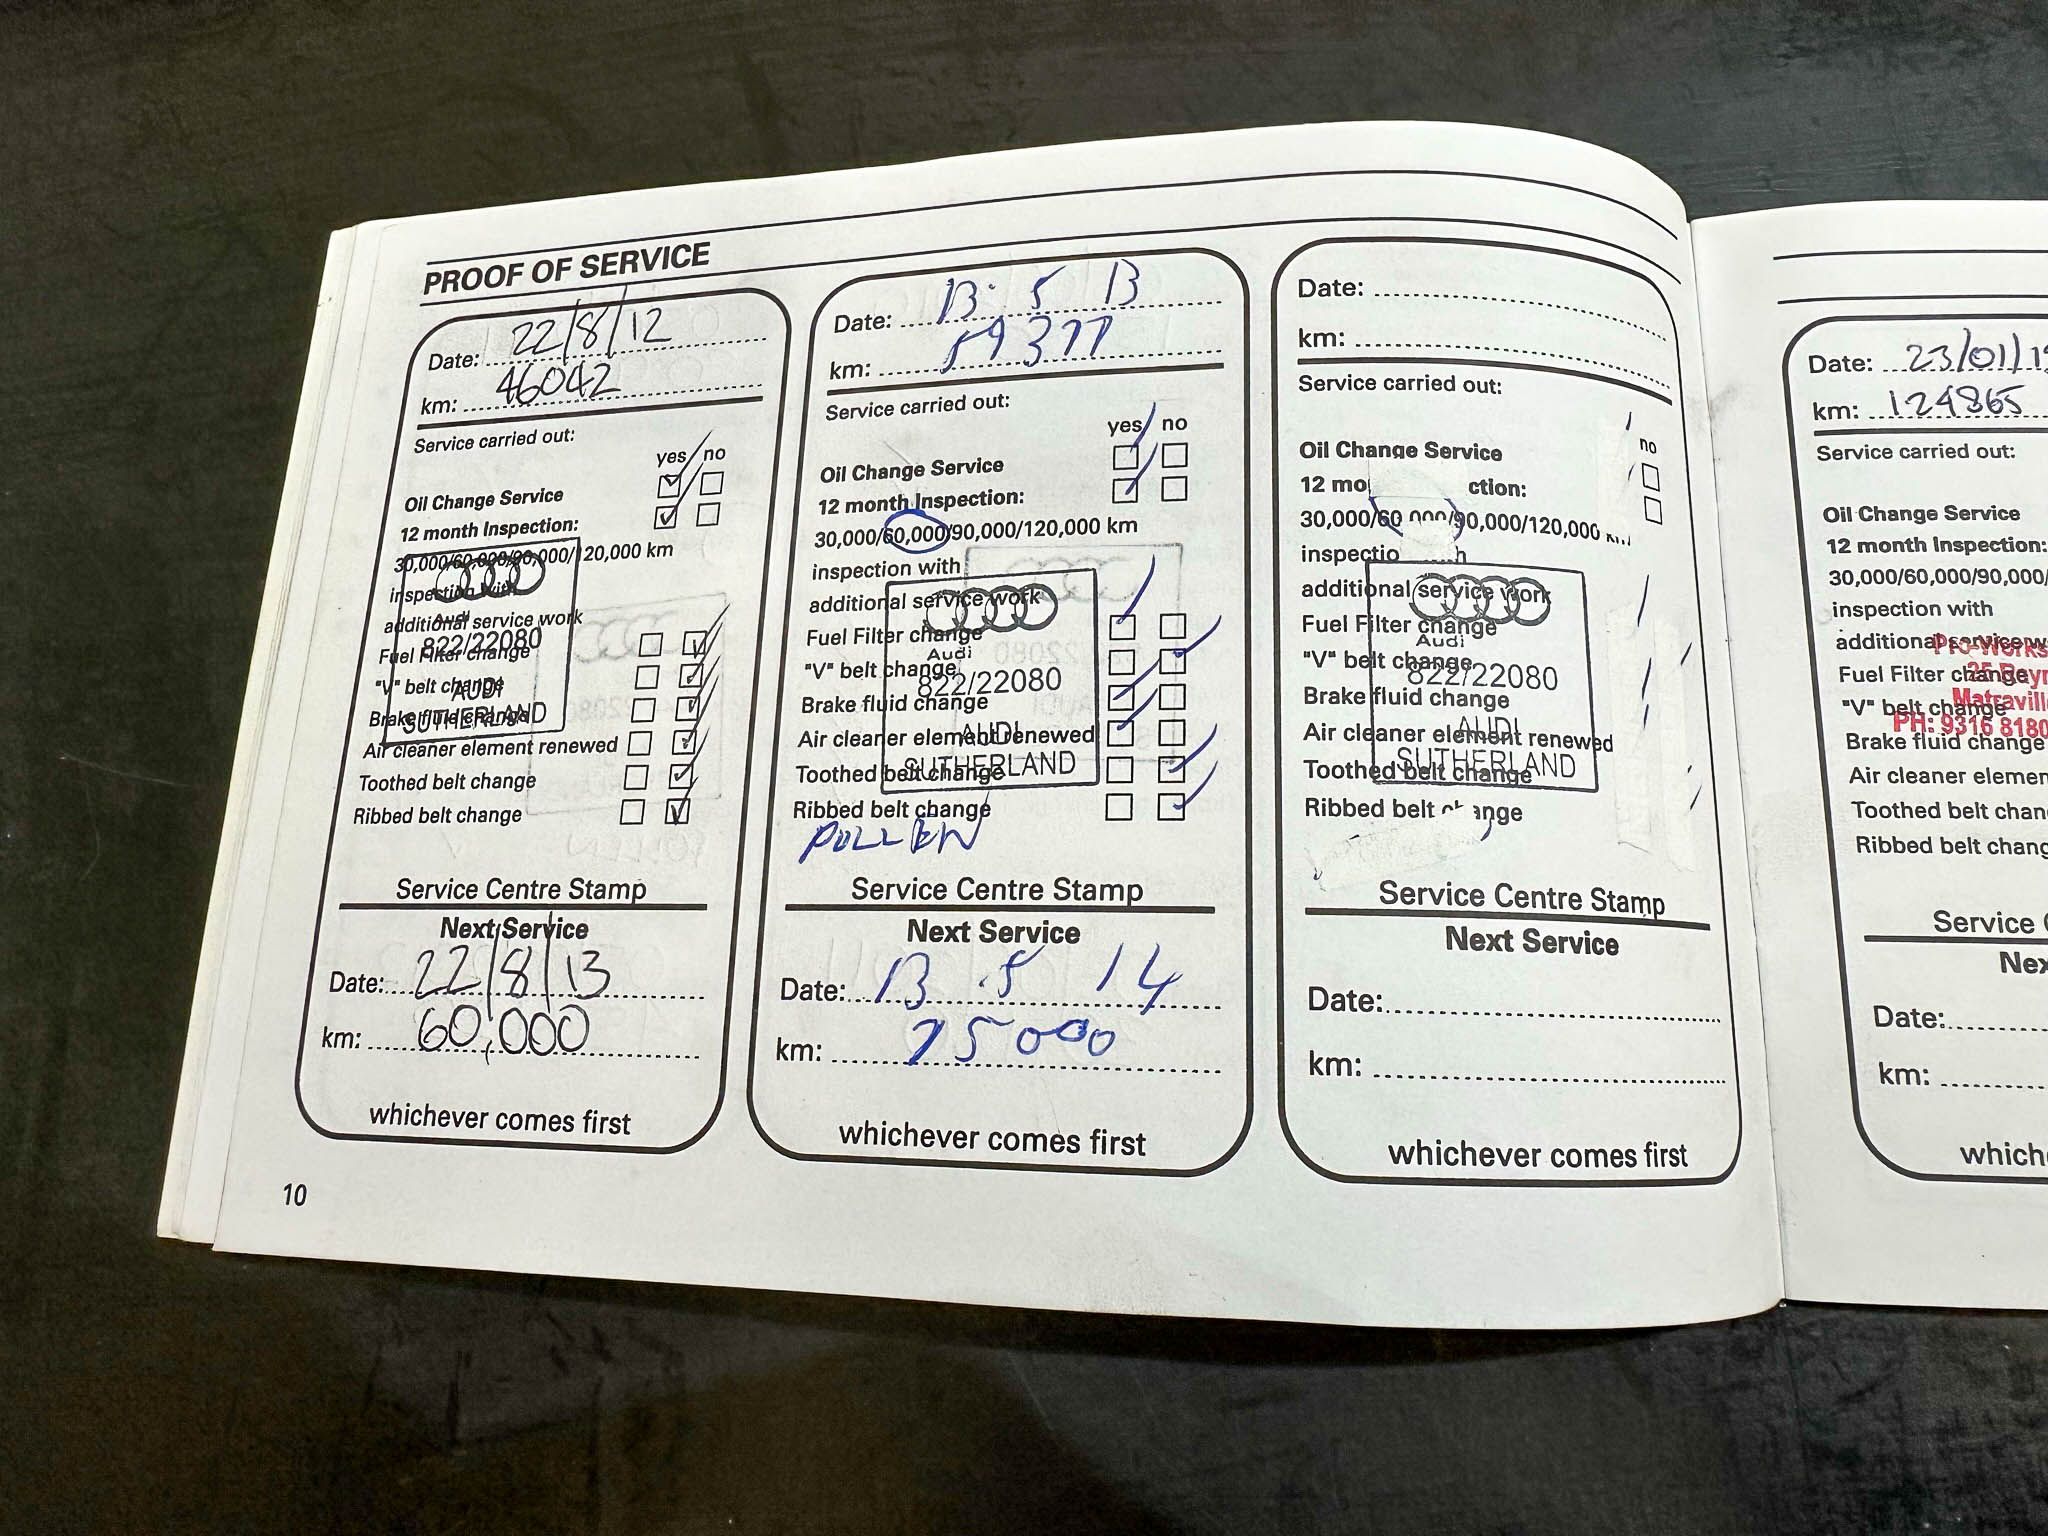 PROOF OF SERVICE
Date: 22/8/12
km: 46042
Service carried out:
yes no
Oil Change Service
12 month Inspection:
30,000/60,000/90,000/120,000 km
inspection with
additional service work
Fuel Filter change
"V" belt change
Brake fluid change
Air cleaner element renewed
Toothed belt change
Ribbed belt change
Audi
822/22080
AUDI
SUTHERLAND
Service Centre Stamp
Next Service
Date: 22/8/13
km: 60,000
whichever comes first
10
Date: 13. 5 13
km: 59377
Service carried out:
yes no
Oil Change Service
12 month Inspection:
30,000/60,000/90,000/120,000 km
inspection with
additional service work
Fuel Filter change
"V" belt change
Brake fluid change
Air cleaner element renewed
Toothed belt change
Ribbed belt change
POLLEN
Audi
822/22080
AUDI
SUTHERLAND
Service Centre Stamp
Next Service
Date: 13 .5 14
km: 75000
whichever comes first
Date:
km:
Service carried out:
no
Oil Change Service
12 mo ction:
30,000/60,000/90,000/120,000
inspectio h
additional service work
Fuel Filter change
"V" belt change
Brake fluid change
Air cleaner element renewed
Toothed belt change
Ribbed belt change
Audi
822/22080
AUDI
SUTHERLAND
Service Centre Stamp
Next Service
Date:
km:
whichever comes first
Date: 23/01/1
km: 124865
Service carried out:
Oil Change Service
12 month Inspection:
30,000/60,000/90,000/
inspection with
additional service w
Fuel Filter change
"V" belt change
Brake fluid change
Air cleaner elemen
Toothed belt chan
Ribbed belt chang
Pro-Works
Matraville
PH: 9316 8180
Service C
Nex
Date:
km:
which